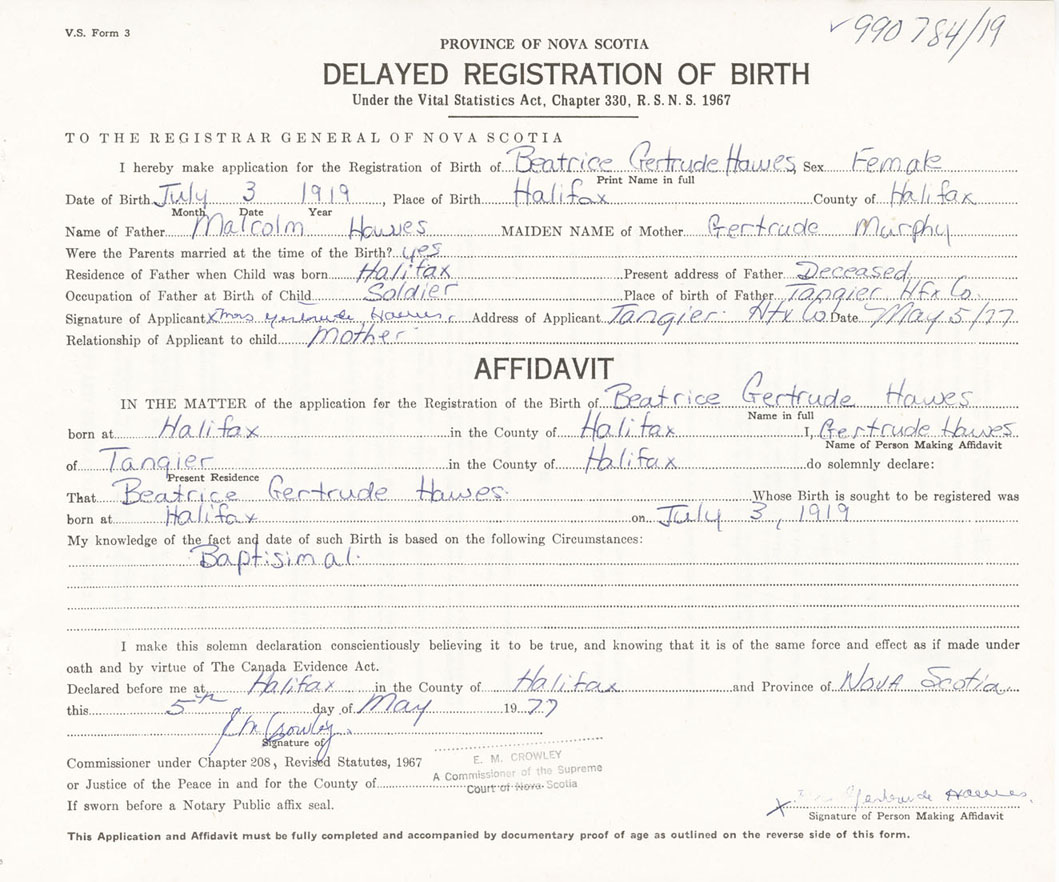 V.S. Form 3
✓990784/19
PROVINCE OF NOVA SCOTIA
DELAYED REGISTRATION OF BIRTH
Under the Vital Statistics Act, Chapter 330, R. S. N. S. 1967
TO THE REGISTRAR GENERAL OF NOVA SCOTIA
I hereby make application for the Registration of Birth of Beatrice Gertrude Hawes, Sex Female
Print Name in full
Date of Birth July 3 1919, Place of Birth Halifax County of Halifax
Month Date Year
Name of Father Malcolm Hawes MAIDEN NAME of Mother Gertrude Murphy
Were the Parents married at the time of the Birth? yes
Residence of Father when Child was born Halifax Present address of Father Deceased
Occupation of Father at Birth of Child Soldier Place of birth of Father Tangier Hfx Co.
Signature of Applicant x Mrs Gertrude Hawes. Address of Applicant Tangier Hfx Co. Date May 5/77
Relationship of Applicant to child Mother
AFFIDAVIT
IN THE MATTER of the application for the Registration of the Birth of Beatrice Gertrude Hawes
Name in full
born at Halifax in the County of Halifax I, Gertrude Hawes
Name of Person Making Affidavit
of Tangier in the County of Halifax do solemnly declare:
Present Residence
That Beatrice Gertrude Hawes Whose Birth is sought to be registered was
born at Halifax on July 3, 1919
My knowledge of the fact and date of such Birth is based on the following Circumstances:
Baptisimal
I make this solemn declaration conscientiously believing it to be true, and knowing that it is of the same force and effect as if made under
oath and by virtue of The Canada Evidence Act.
Declared before me at Halifax in the County of Halifax and Province of Nova Scotia
this 5th day of May 1977
EM Crowley
Signature of
Commissioner under Chapter 208, Revised Statutes, 1967
or Justice of the Peace in and for the County of
If sworn before a Notary Public affix seal.
E. M. CROWLEY
A Commissioner of the Supreme
Court of Nova Scotia
x Mrs Gertrude Hawes.
Signature of Person Making Affidavit
This Application and Affidavit must be fully completed and accompanied by documentary proof of age as outlined on the reverse side of this form.